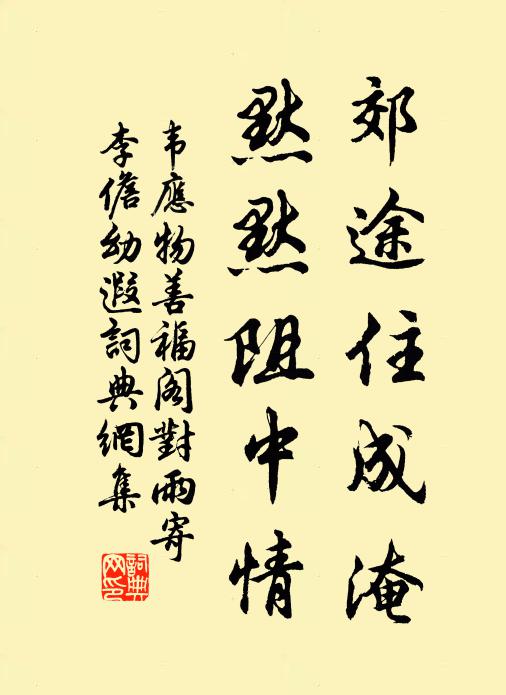 郊途住成淹
默默阻中情
韦應物善福阁對雨寄
李儋幼遐詞典網集
詞典
网印